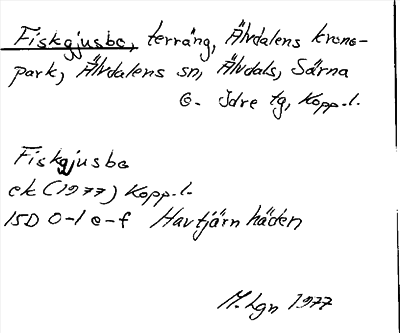 Fiskgjusbo, terräng, Älvdalens krono-
park, Älvdalens sn, Älvdals, Särna
o. Idre tg, Kopp.l.
Fiskgjusbo
ek (1977) Kopp.l.
15D 0-1 e-f Havtjärn häden
M. Lgn 1977